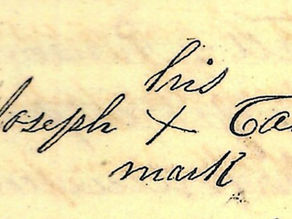 his
Joseph X Ta
mark